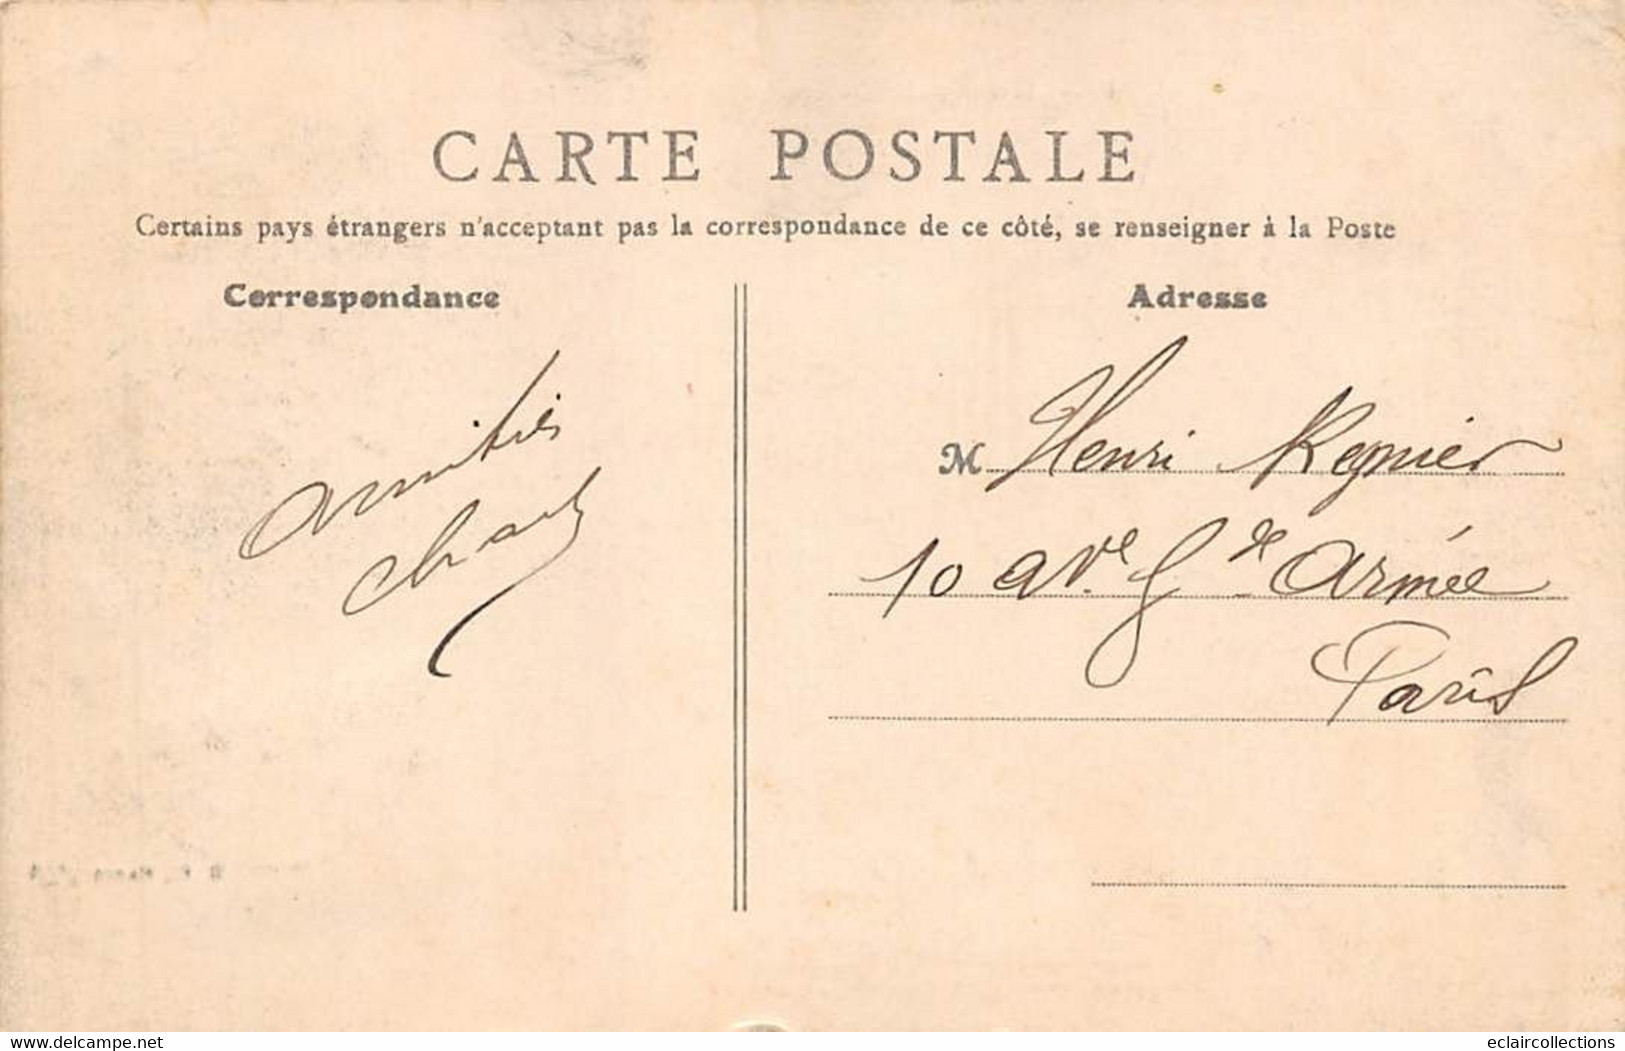 CARTE POSTALE
Certains pays étrangers n'acceptant pas la correspondance de ce côté, se renseigner à la Poste
Correspondance
Adresse
amitiés
M Henri Regnier
10 ave. Gde armée
Paris
delcampe.net
eclaircollections